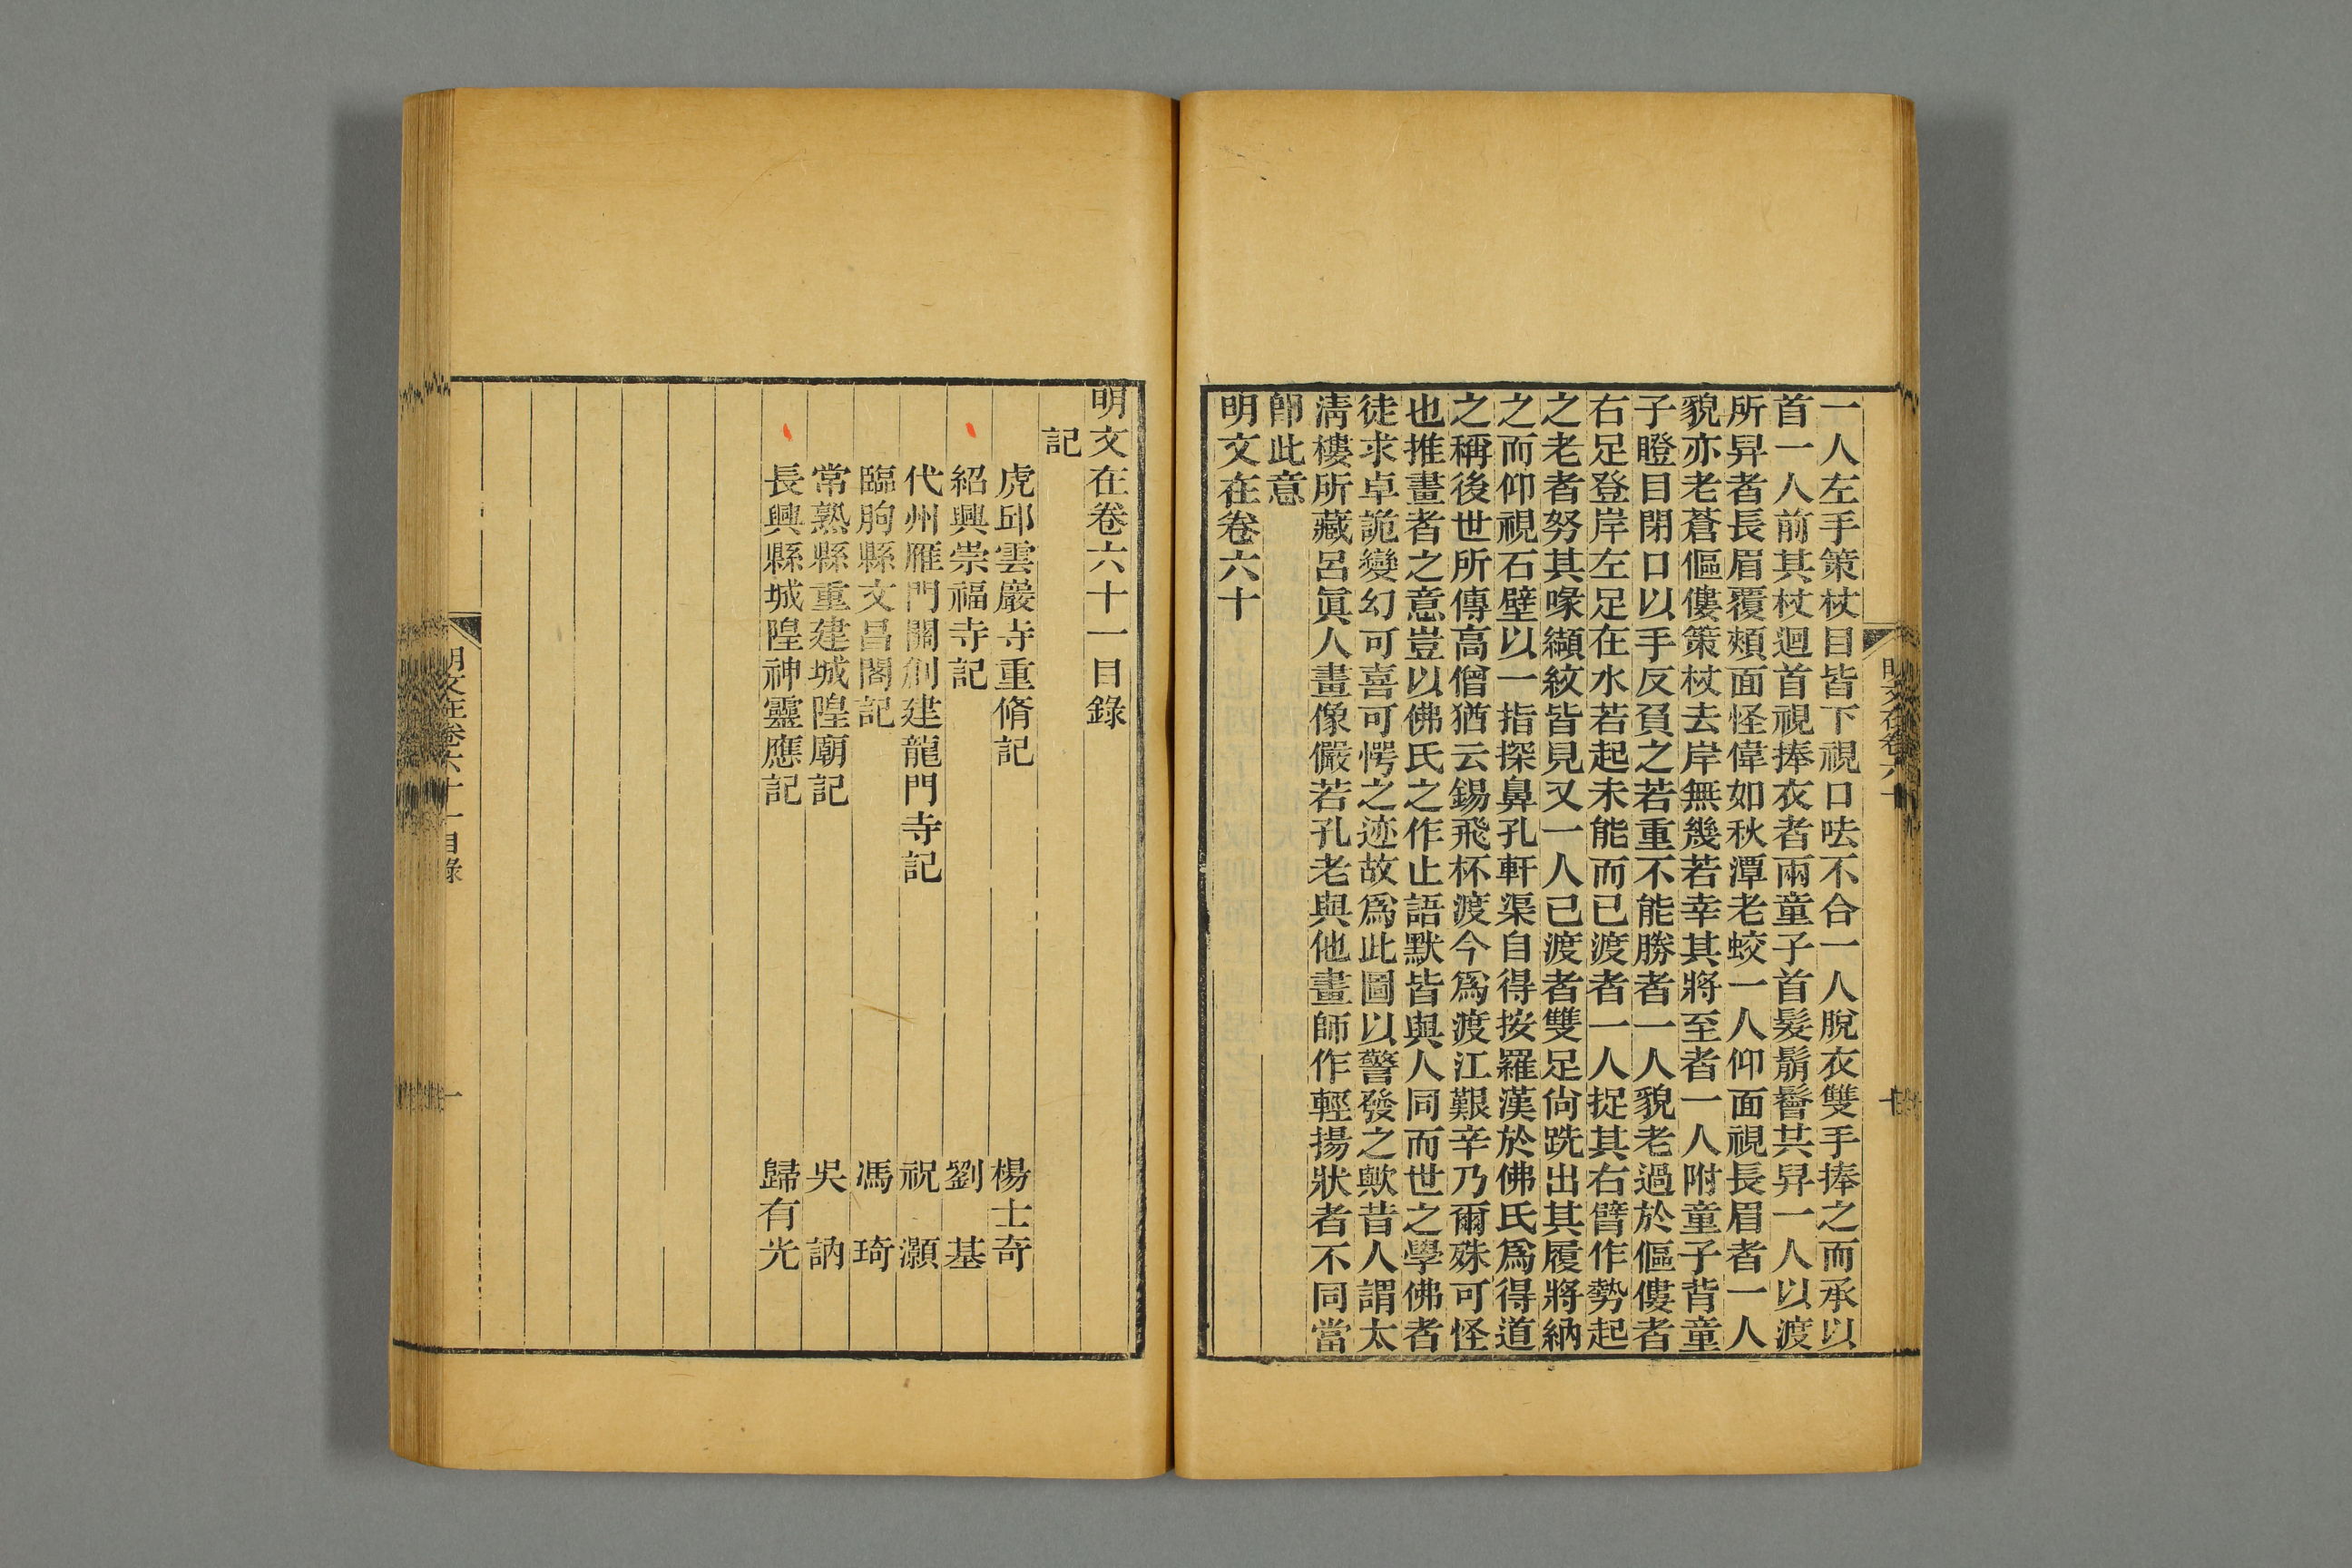 一人左手策杖目皆下視口呿不合一人脫衣雙手捧之而承以
首一人前其杖迴首視捧衣者兩童子首髮鬅鬙共舁一人以渡
所舁者長眉覆頰面怪偉如秋潭老蛟一人仰面視長眉者一人
貌亦老蒼傴僂策杖去岸無幾若幸其將至者一人附童子背童
子瞪目閉口以手反負之若重不能勝者一人貌老過於傴僂者
右足登岸左足在水若起未能而已渡者一人捉其右臂作勢起
之老者努其喙纈紋皆見又一人已渡者雙足尙跣出其履將納
之而仰視石壁以一指探鼻孔軒渠自得按羅漢於佛氏爲得道
之稱後世所傳高僧猶云錫飛杯渡今爲渡江艱辛乃爾殊可怪
也推畫者之意豈以佛氏之作止語默皆與人同而世之學佛者
徒求卓詭變幻可喜可愕之迹故爲此圖以警發之歟昔人謂太
淸樓所藏呂眞人畫像儼若孔老與他畫師作輕揚狀者不同當
卽此意
明文在卷六十
明文在卷六十一目錄
記
虎邱雲巖寺重脩記 楊士奇
紹興崇福寺記 劉基
代州雁門關創建龍門寺記 祝灝
臨朐縣文昌閣記 馮琦
常熟縣重建城隍廟記 吳訥
長興縣城隍神靈應記 歸有光
明文在卷六十一目錄
一